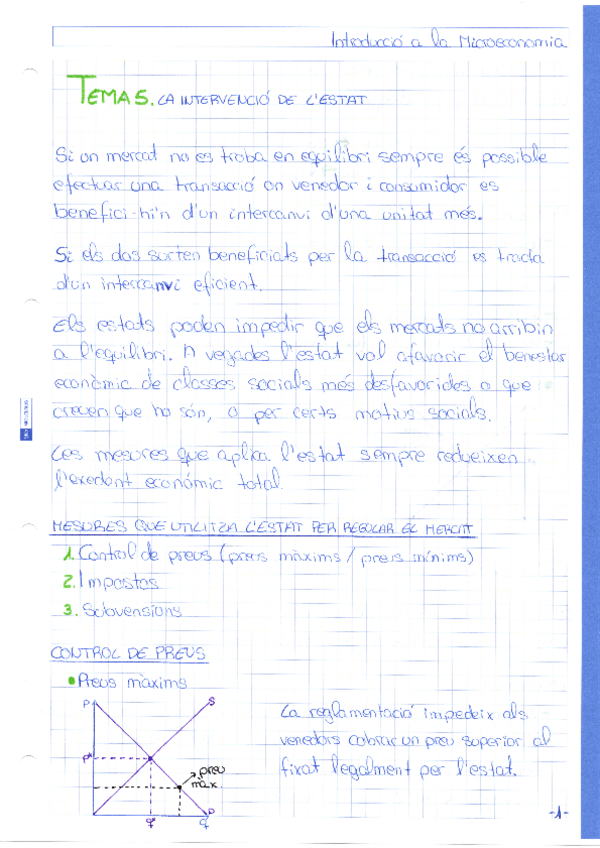 Introducció a la Microeconomia
TEMA 5. LA INTERVENCIÓ DE L'ESTAT
Si un mercat no es troba en equilibri sempre és possible
efectuar una transacció on venedor i consumidor es
benefici-hi'n d'un intercanvi d'una unitat més.
Si els dos surten beneficiats per la transacció es tracta
d'un intercanvi eficient.
Els estats poden impedir que els mercats no arribin
a l'equilibri. A vegades l'estat vol afavorir el benestar
econòmic de classes socials més desfavorides o que
creuen que ho són, o per certs motius socials.
Les mesures que aplica l'estat sempre redueixen
l'exedent econòmic total.
MESURES QUE UTILITZA L'ESTAT PER REGULAR EL MERCAT
1. Control de preus (preus màxims / preus mínims)
2. Impostos
3. Subvensions
CONTROL DE PREUS
• Preus màxims
P
S
La reglamentació impedeix als
venedors cobrar un preu superior al
fixat legalment per l'estat.
P*
preu
màx.
q*
q
D
-1-